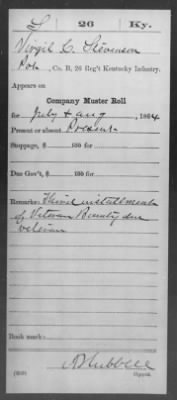 S 26 Ky.
Virgil C. Stevenson
Co. B, 26 Reg't Kentucky Infantry.
Appears on
Company Muster Roll
for July & Aug, 1864
Present or absent Present
Stoppage, $ 100 for
Due Gov't, $ 100 for
Remarks: Third installment
of Veteran Bounty due
veteran
Book mark:
Hubbell
(358) Copyist.